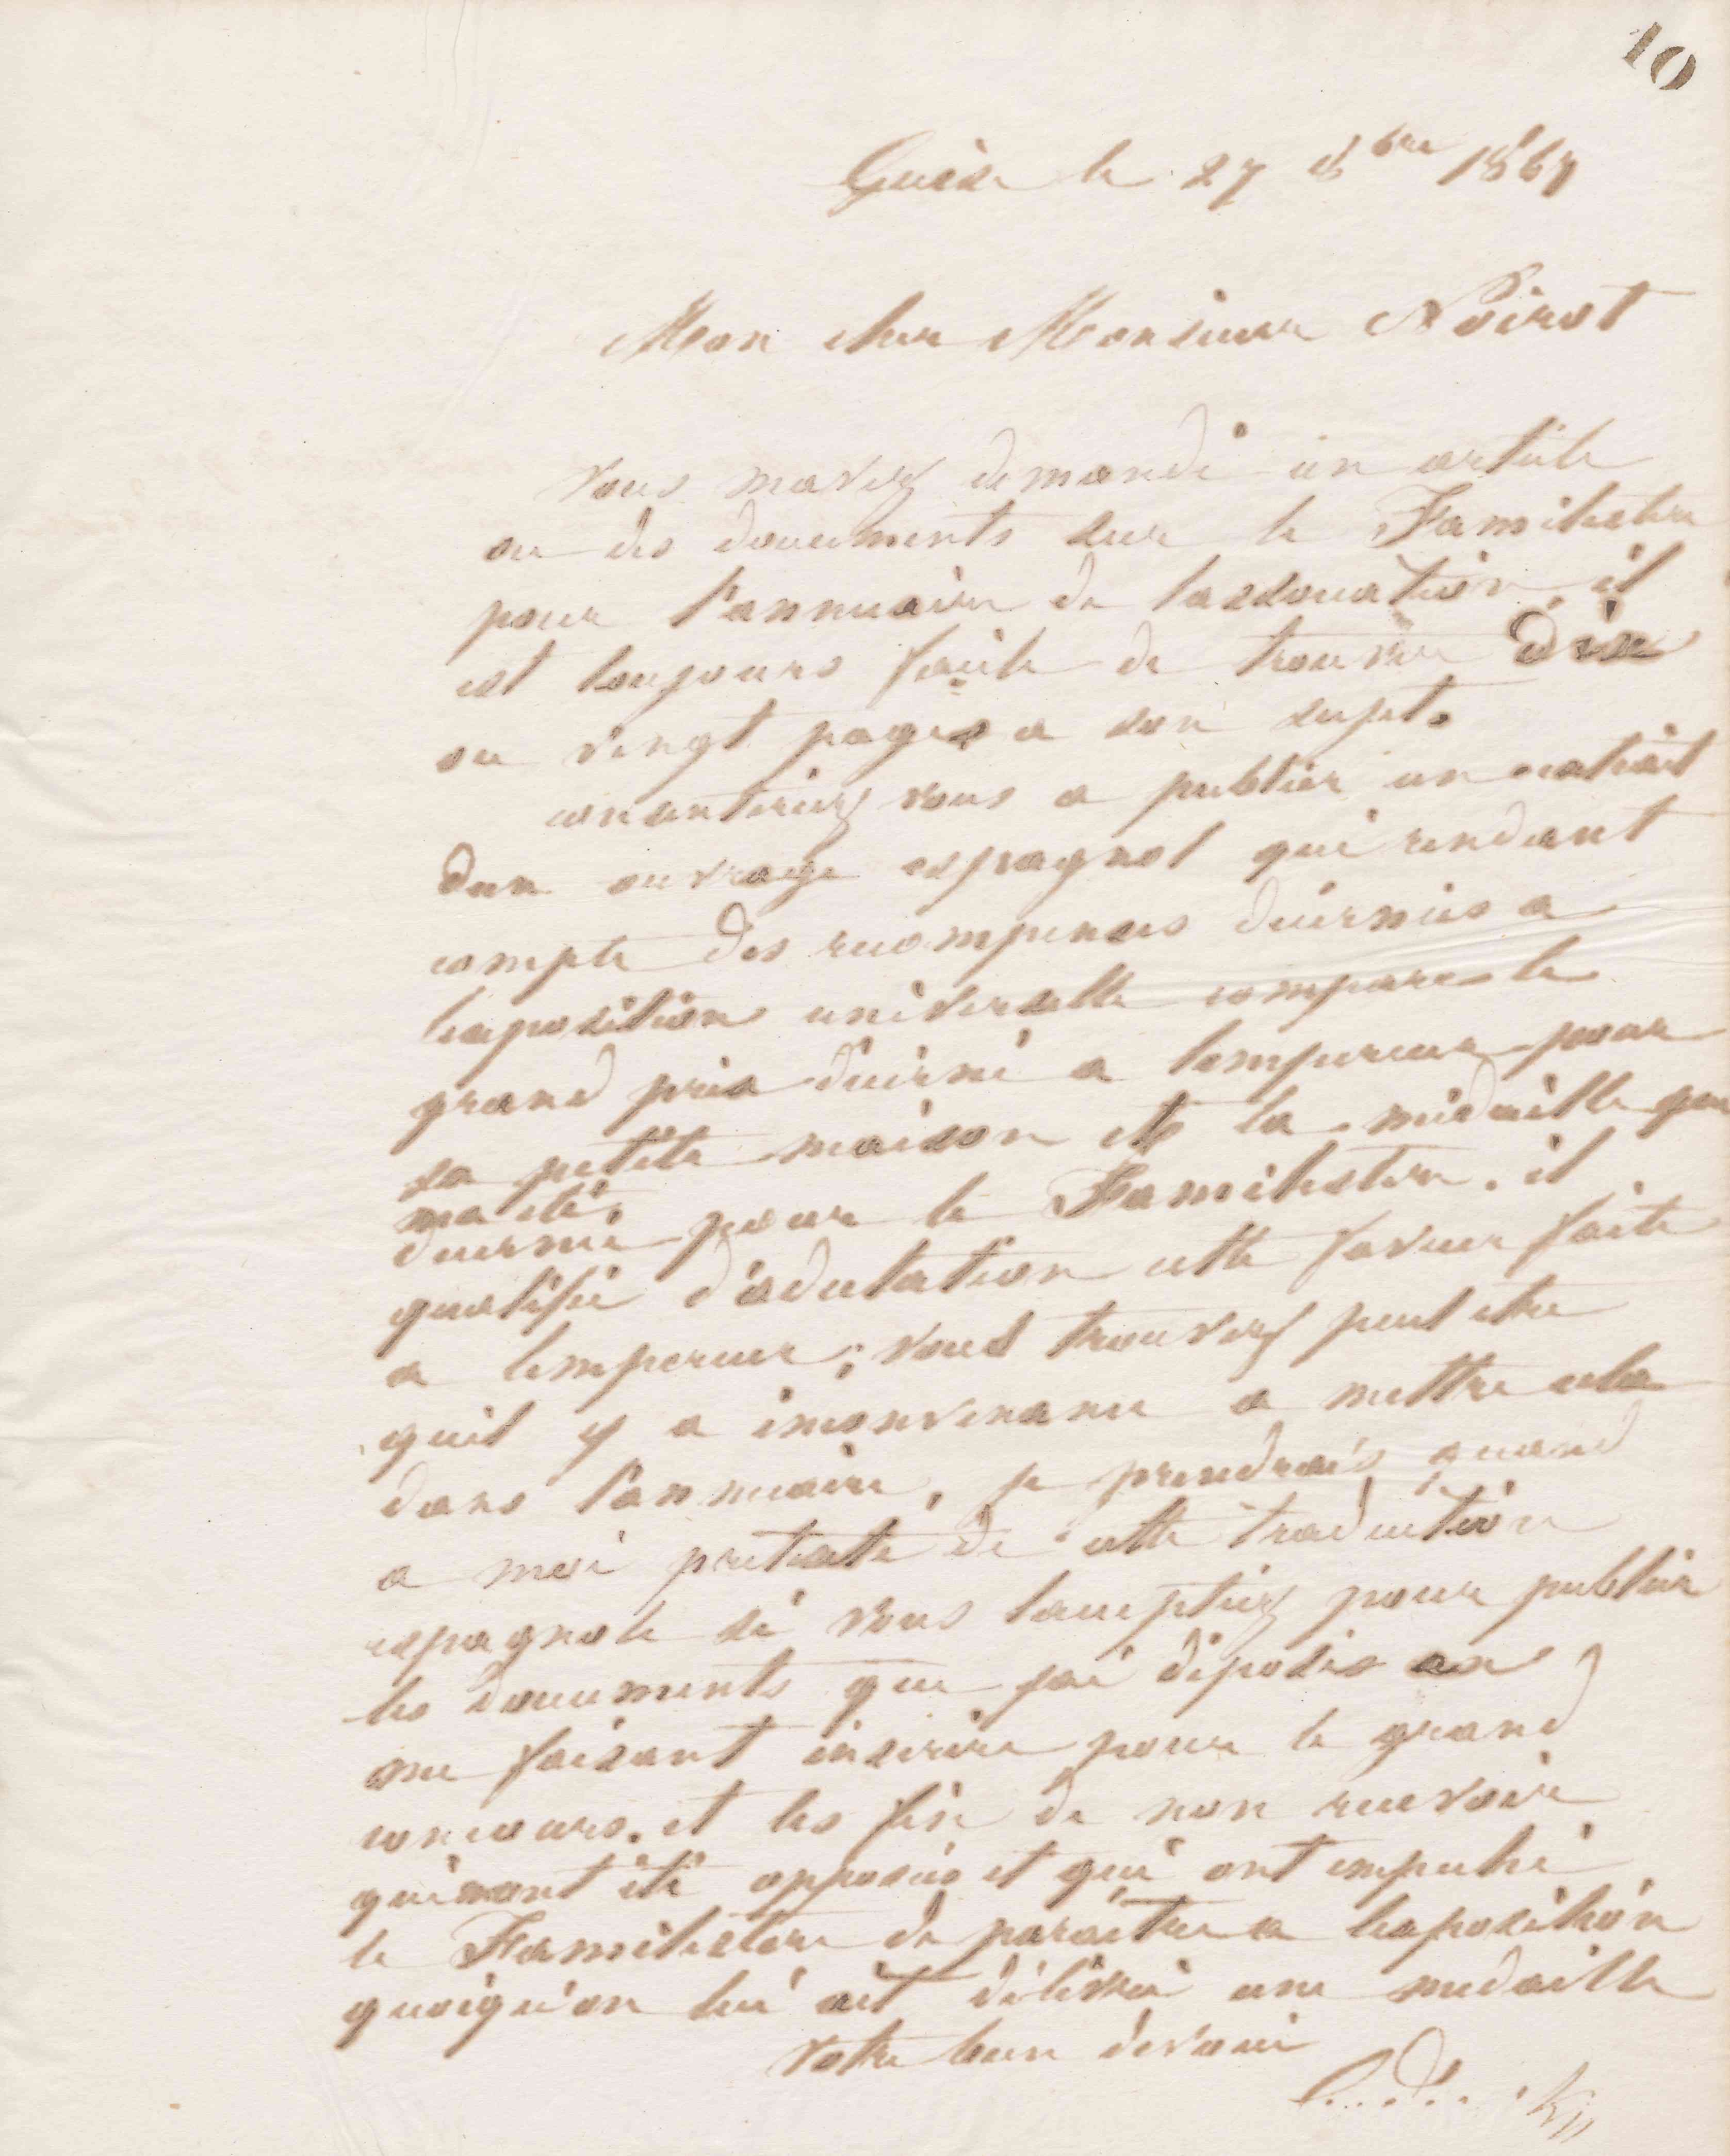 10
Guise le 27 8bre 1867
Mon cher Monsieur Noirot
Vous mavez demandé un article
ou des documents sur le Familistere
pour l'annuaire de lassociation, il
est toujours facile de trouver dix
ou vingt pages a son sujet.
consentiriez vous a publier un extrait
dun ouvrage espagnol qui rendant
compte des recompenses décernées a
lexposition universelle compare le
grand prix décerné a lempereur pour
sa petite maison et la médaille qui
ma été
décerné pour le Familistere. il
qualifie d'adulation cette faveur faite
a lempereur; vous trouvez peut etre
quil y a inconvenance a mettre cela
dans l'annuaire, je prendrais quand
a moi pretexte de cette traduction
espagnole si vous lacceptiez pour publier
les documents que jai déposés en
me faisant inscrire pour le grand
concours. et les fin de non recevoir
qui mont été opposées et qui ont empeché
le Familistere de paraitre a lexposition
quoiqu'on lui ait délivré une medaille
Votre bien dévoué